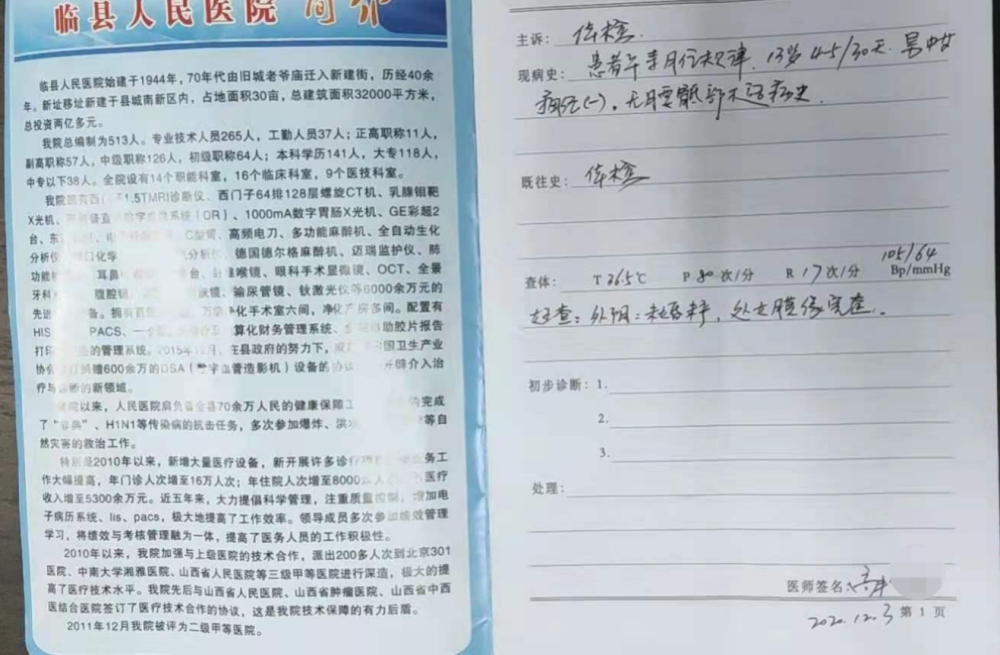 临县人民医院 简介
临县人民医院始建于1944年，70年代由旧城老爷庙迁入新建街，历经40余
年。新址移址新建于县城南新区内，占地面积30亩，总建筑面积32000平方米，
总投资两亿多元。
我院总编制为513人。专业技术人员265人，工勤人员37人；正高职称11人，
副高职称57人，中级职称126人，初级职称64人；本科学历141人，大专118人，
中专以下38人。全院设有14个职能科室，16个临床科室，9个医技科室。
我院拥有西门子1.5TMRI诊断仪、西门子64排128层螺旋CT机、乳腺钼靶
X光机、数字系统（DR）、1000mA数字胃肠X光机、GE彩超2
台、C型臂、高频电刀、多功能麻醉机、全自动生化
分析仪、化学分析、德国德尔格麻醉机、迈瑞监护仪、肺
功能、耳鼻台、喉镜、眼科手术显微镜、OCT、全景
牙科、腹腔镜、镜、输尿管镜、钬激光仪等6000余万元的
先进设备。拥有百级、万级净化手术室六间，净化产房多间。配置有
HIS、PACS、一算化财务管理系统、自助胶片报告
打印的管理系统。2015年12月，在县政府的努力下，国卫生产业
协会捐赠600余万的DSA（数字血管造影机）设备的协议，开辟介入治
疗与诊断的新领域。
建院以来，人民医院肩负着全县70余万人民的健康保障工完成
了“非典”、H1N1等传染病的抗击任务，多次参加爆炸、洪等自
然灾害的救治工作。
特别是2010年以来，新增大量医疗设备，新开展许多诊疗务工
作大幅提高，年门诊人次增至16万人次；年住院人次增至8000医疗
收入增至5300余万元。近五年来，大力提倡科学管理，注重质量控制，增加电
子病历系统、lis、pacs，极大地提高了工作效率。领导成员多次参加绩效管理
学习，将绩效与考核管理融为一体，提高了医务人员的工作积极性。
2010年以来，我院加强与上级医院的技术合作，派出200多人次到北京301
医院、中南大学湘雅医院、山西省人民医院等三级甲等医院进行深造，极大的提
高了医疗技术水平。我院先后与山西省人民医院、山西省肿瘤医院、山西省中西
医结合医院签订了医疗技术合作的协议，这是我院技术保障的有力后盾。
2011年12月我院被评为二级甲等医院。
主诉： 体检.
现病史： 患者平素月经规律，13岁 4-5/30天.
痛经(-)，无腰骶部不适病史.
既往史： 体检
查体： T 36.5℃ P 80 次/分 R 17 次/分 105/64 Bp/mmHg
妇查：外阴：未婚未产，处女膜缘完整.
初步诊断：1.
2.
3.
处理：
医师签名
2020.12.3 第 1 页